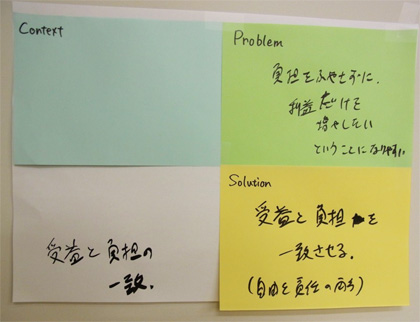 Context
Problem
負担をふやさずに、
利益だけを
増やしたい
ということになりやすい
Solution
受益と負担を
一致させる。
(自由と責任の両方)
受益と負担の
一致。